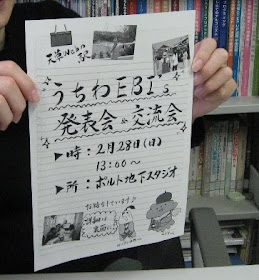 うちわEBIs
発表会&交流会
▶時：2月28日(日)
13:00～
▶所：ボルト地下スタジオ
お待ちしています♪
詳細は
裏面に